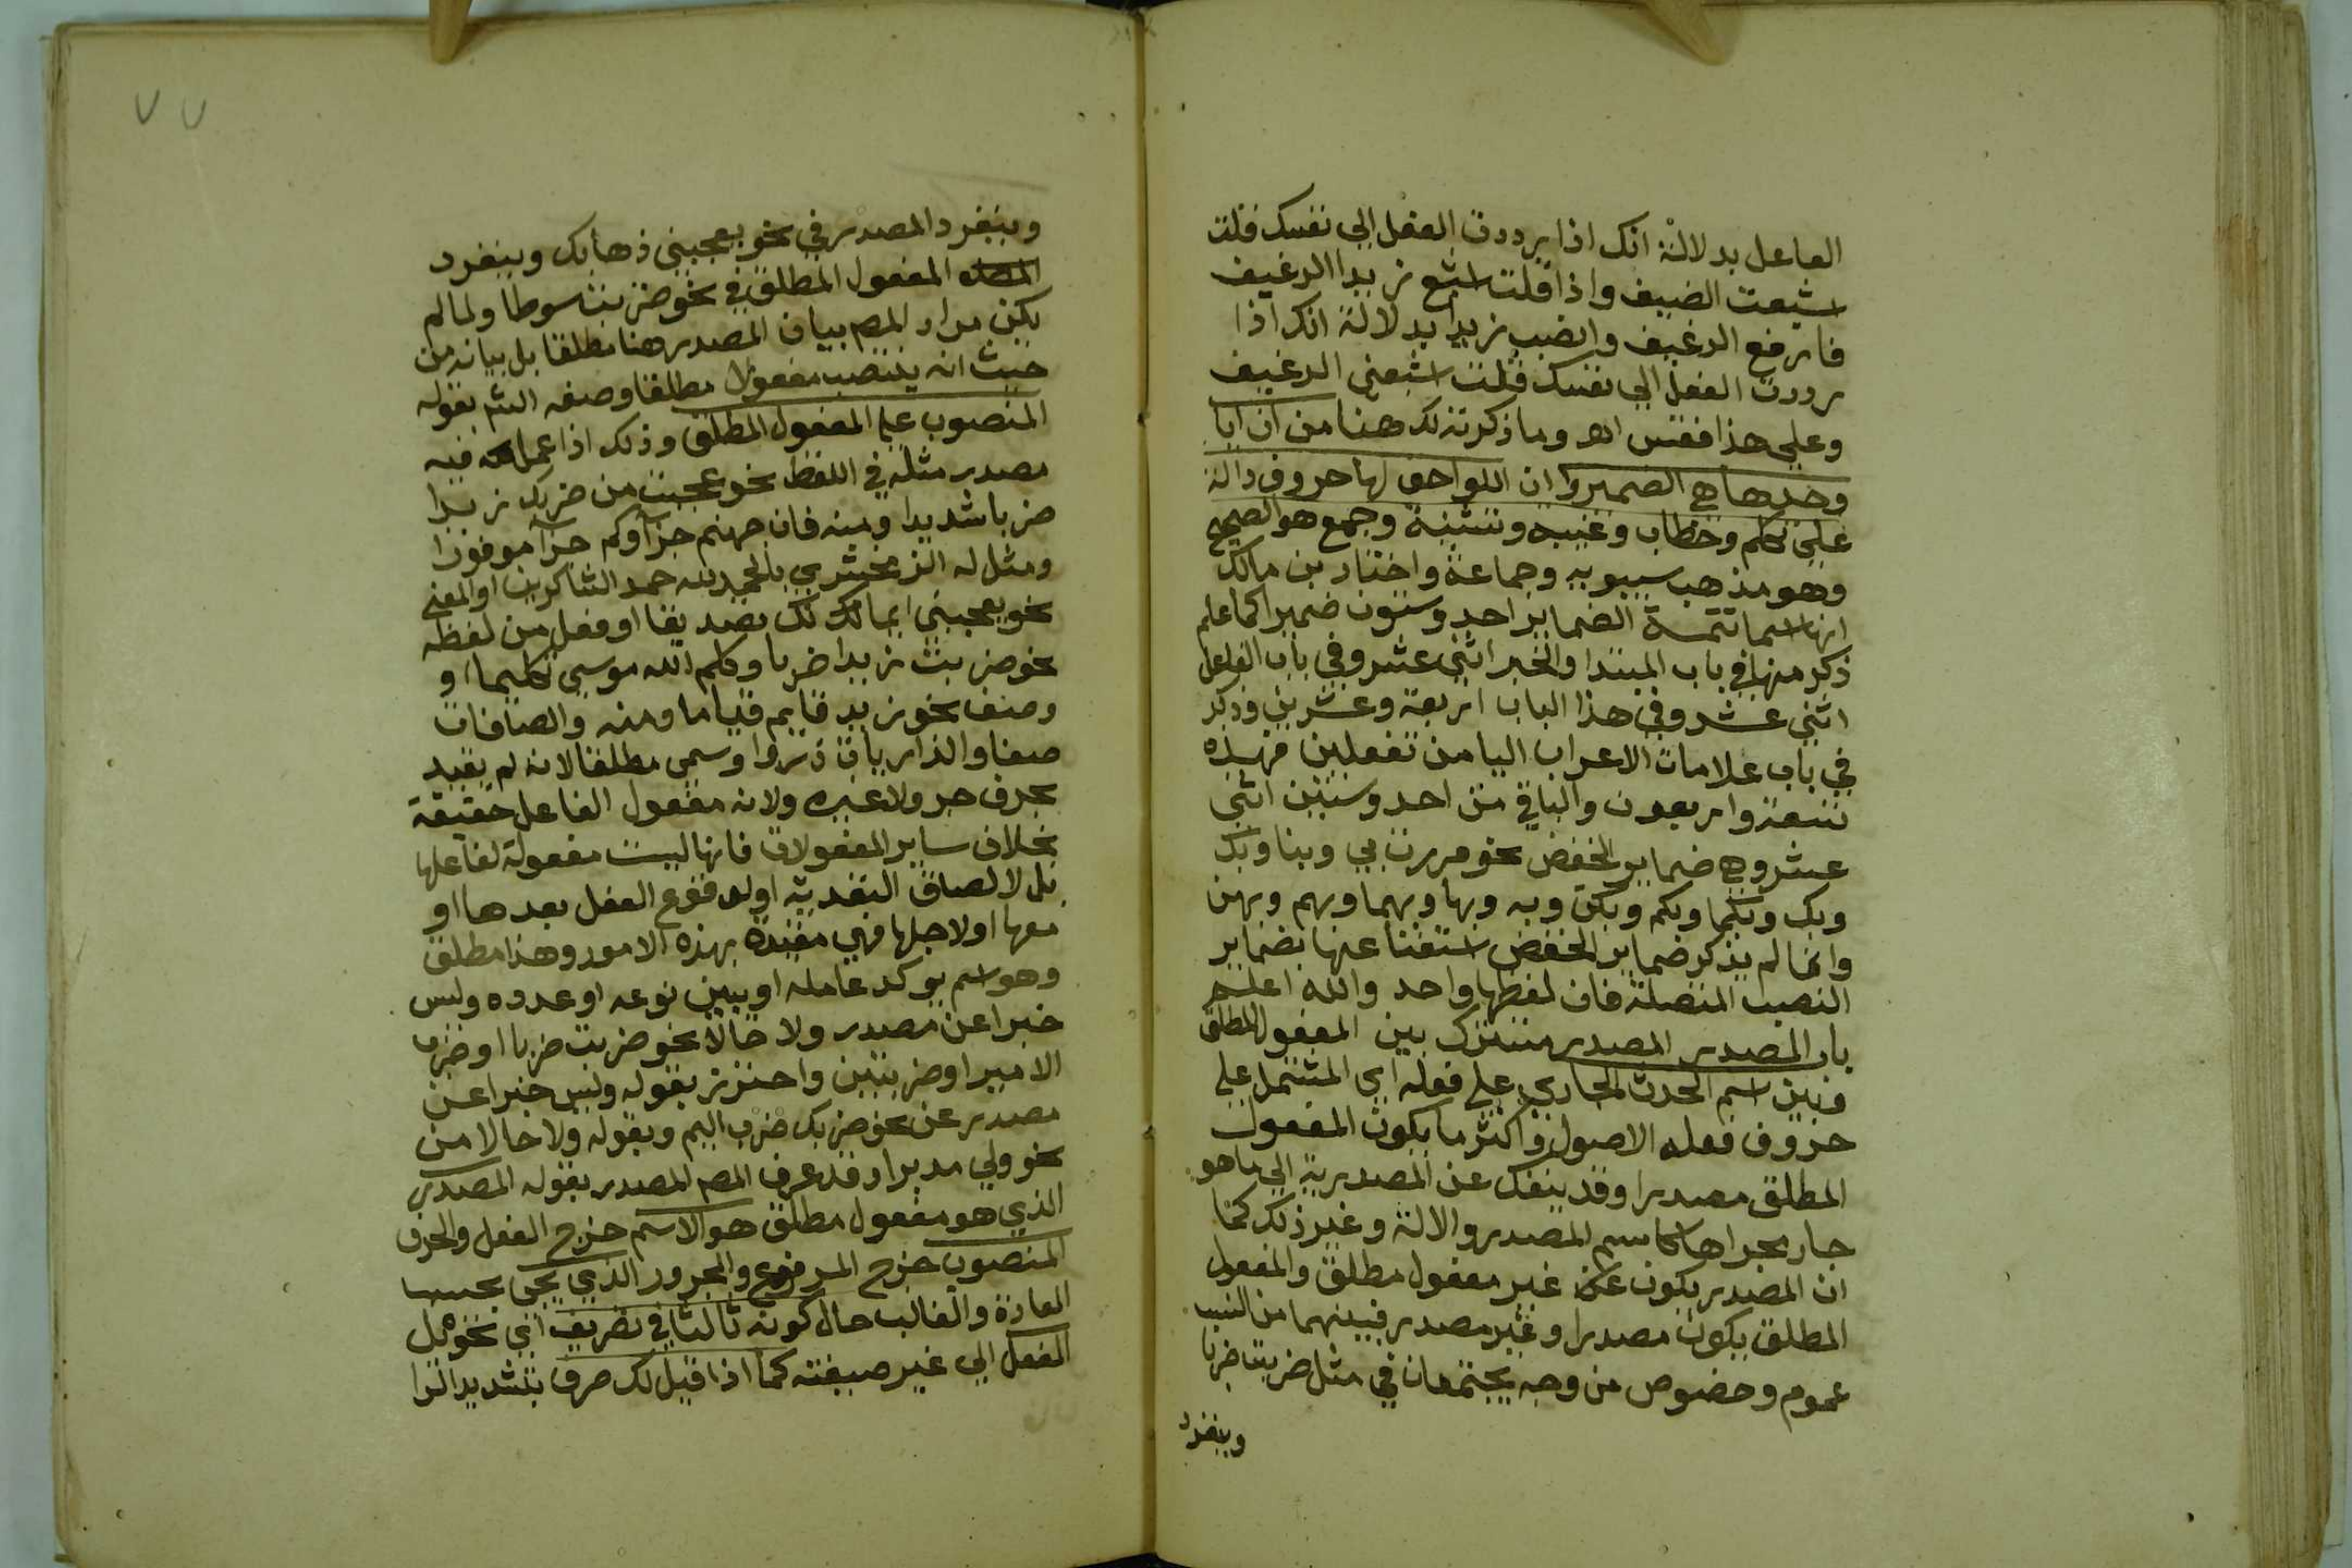 الفاعل بدلالة انك اذا رددت الفعل الي نفسك قلت
اشبعت الضيف واذا قلت اشبع زيدا الرغيف
فارفع الرغيف وانصب زيدا بدلالة انك اذا
رددت الفعل الي نفسك قلت اشبعني الرغيف
وعلي هذا فقس اهـ وما ذكرته لك هنا من ان ايا
وحدها هي الضمير وان اللواحق لها حروف دالة
علي تكلم وخطاب وغيبة وتثنية وجمع هو الصحيح
وهو مذهب سيبويه وجماعة واختار بن مالك
انها اسما تتمـة الضماير احد وستون ضميرا كما علم
ذكر منها في باب المبتدا والخبر اثني عشر وفي باب الفاعل
اثني عشر وفي هذا الباب اربعة وعشرين وذكر
في باب علامات الاعراب اليا من تفعلين فهذه
تسعة واربعون والباقي من احد وستين اثني
عشر وهي ضماير الخفض نحو مررت بي وبنا وبك
وبك وبكما وبكم وبكن وبه وبها وبهما وبهم وبهن
وانما لم يذكر ضماير الخفض استغنا عنها بضماير
النصب المتصلة فان لفظها واحد والله اعلم
باب المصدر المصدر مشترك بين المفعول المطلق
وبين اسم الحدث الجاري علي فعله اي المشتمل علي
حروف فعله الاصول واكثر ما يكون المفعول
المطلق مصدرا وقد ينفك عن المصدرية الي ما هو
جار مجراها كاسم المصدر والالة وغير ذلك كما
ان المصدر يكون غير مفعول مطلق والمفعول
المطلق يكون مصدرا وغير مصدر فبينهما من النسب
عموم وخصوص من وجه يجتمعان في مثل ضربت ضربا
وينفرد
وينفرد المصدر في نحو يعجبني ذهابك وينفرد
المفعول المطلق في نحو ضربت سوطا ولما لم
يكن مراد المص بيان المصدر هنا مطلقا بل بيانه من
حيث انه ينتصب مفعولا مطلقا وصفه الش بقوله
المنصوب علي المفعول المطلق وذلك اذا عمل فيه
مصدر مثله في اللفظ نحو عجبت من ضربك زيدا
ضربا شديدا ومنه فان جهنم جزآوكم جزآ موفورا
ومثل له الزمخشري بالحمد لله حمد الشاكرين او المعني
نحو يعجبني ايمانك تصديقا او فعل من لفظه
نحو ضربت زيدا ضربا وكلم الله موسي تكليما او
وصف نحو زيد قايم قياما ومنه والصافات
صفا والذاريات ذروا وسمي مطلقا لانه لم يقيد
بحرف جر ولا غيره ولانه مفعول الفاعل حقيقة
بخلاف ساير المفعولات فانها ليست مفعولة لفاعلها
بل لالصاق التعدية او لوقوع الفعل بعدها او
معها او لاجلها فهي مقيدة بهذه الامور وهذا مطلق
وهو اسم يوكد عامله او يبين نوعه او عدده وليس
خبرا عن مصدر ولا حالا نحو ضربت ضربا او ضرب
الامير او ضربتين واحترز بقوله وليس خبرا عن
مصدر عن نحو ضربك ضرب اليم وبقوله ولا حالا من
نحو ولي مدبرا وقد عرف المص المصدر بقوله المصدر
الذي هو مفعول مطلق هو الاسم خرج الفعل والحرف
المنصوب خرج المرفوع والمجرور الذي يجي بحسب
العادة والغالب حال كونه ثالثا في تصريف اي تحويل
الفعل الي غير صيغته كما اذا قيل لك صرف بتشديد الرا